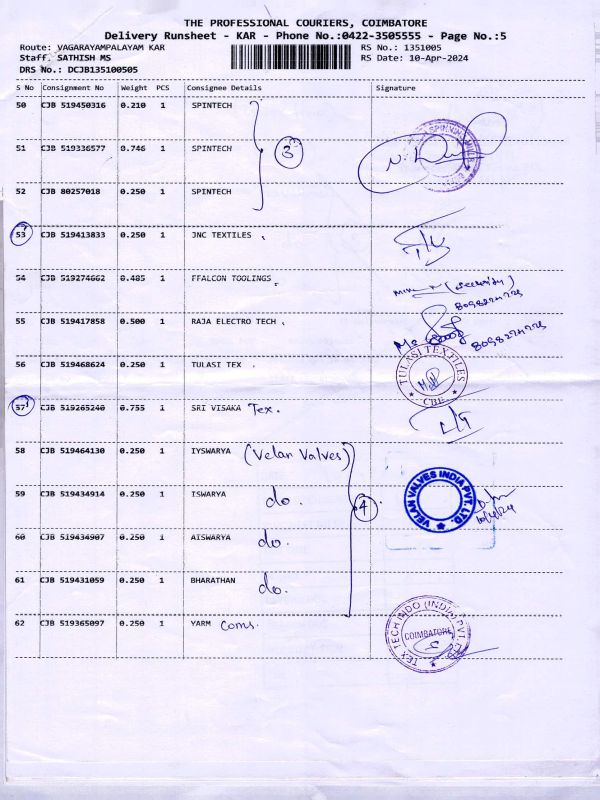 THE PROFESSIONAL COURIERS, COIMBATORE
Delivery Runsheet - KAR - Phone No.:0422-3505555 - Page No.:5
Route: VAGARAYAMPALAYAM KAR RS No.: 1351005
Staff. SATHISH MS RS Date: 10-Apr-2024
DRS No.: DCJB135100505
S No Consignment No Weight PCS Consignee Details Signature
50 CJB 519450316 0.210 1 SPINTECH
3
51 CJB 519336577 0.746 1 SPINTECH
52 CJB 80257018 0.250 1 SPINTECH
53 CJB 519413833 0.250 1 JNC TEXTILES
54 CJB 519274662 0.485 1 FFALCON TOOLINGS (Security)
8098274725
55 CJB 519417858 0.500 1 RAJA ELECTRO TECH 8098274725
56 CJB 519468624 0.250 1 TULASI TEX TULASI TEXTILES CBE
57 CJB 519265240 0.755 1 SRI VISAKA Tex.
58 CJB 519464130 0.250 1 IYSWARYA (Velan Valves)
59 CJB 519434914 0.250 1 ISWARYA do. 4 VELAN VALVES INDIA PVT. LTD. 10/4/24
60 CJB 519434907 0.250 1 AISWARYA do.
61 CJB 519431059 0.250 1 BHARATHAN do.
62 CJB 519365097 0.250 1 YARM Coms. TEX TECH INDO (INDIA) PVT. LTD. COIMBATORE